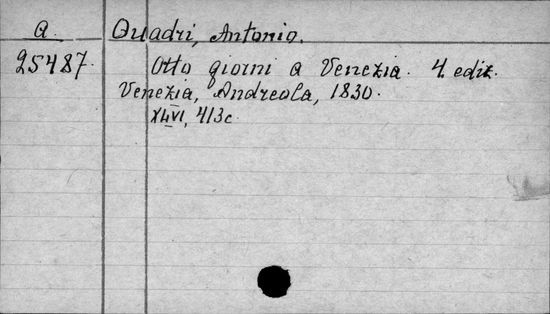 a Quadri, Antonio.
25487. Otto giorni a Venezia. 4. ediz.
Venezia, Andreola, 1830.
XLVI, 413 c